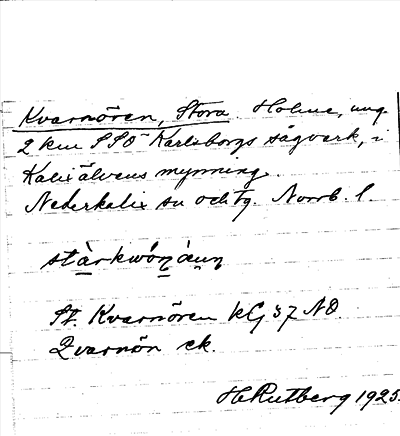 Kvarnören, Stora. Holme, ung.
2 km SSO Karlsborgs sågverk, i
Kalixälvens mynning.
Nederkalix sn och tg. Norrb. l.
St. Kvarnören kG 37 NO.
Qvarnön ek.
H. Rutberg 1925.